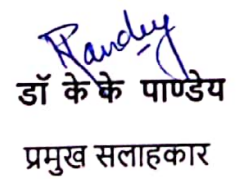 Pandey
डॉ के के पाण्डेय
प्रमुख सलाहकार